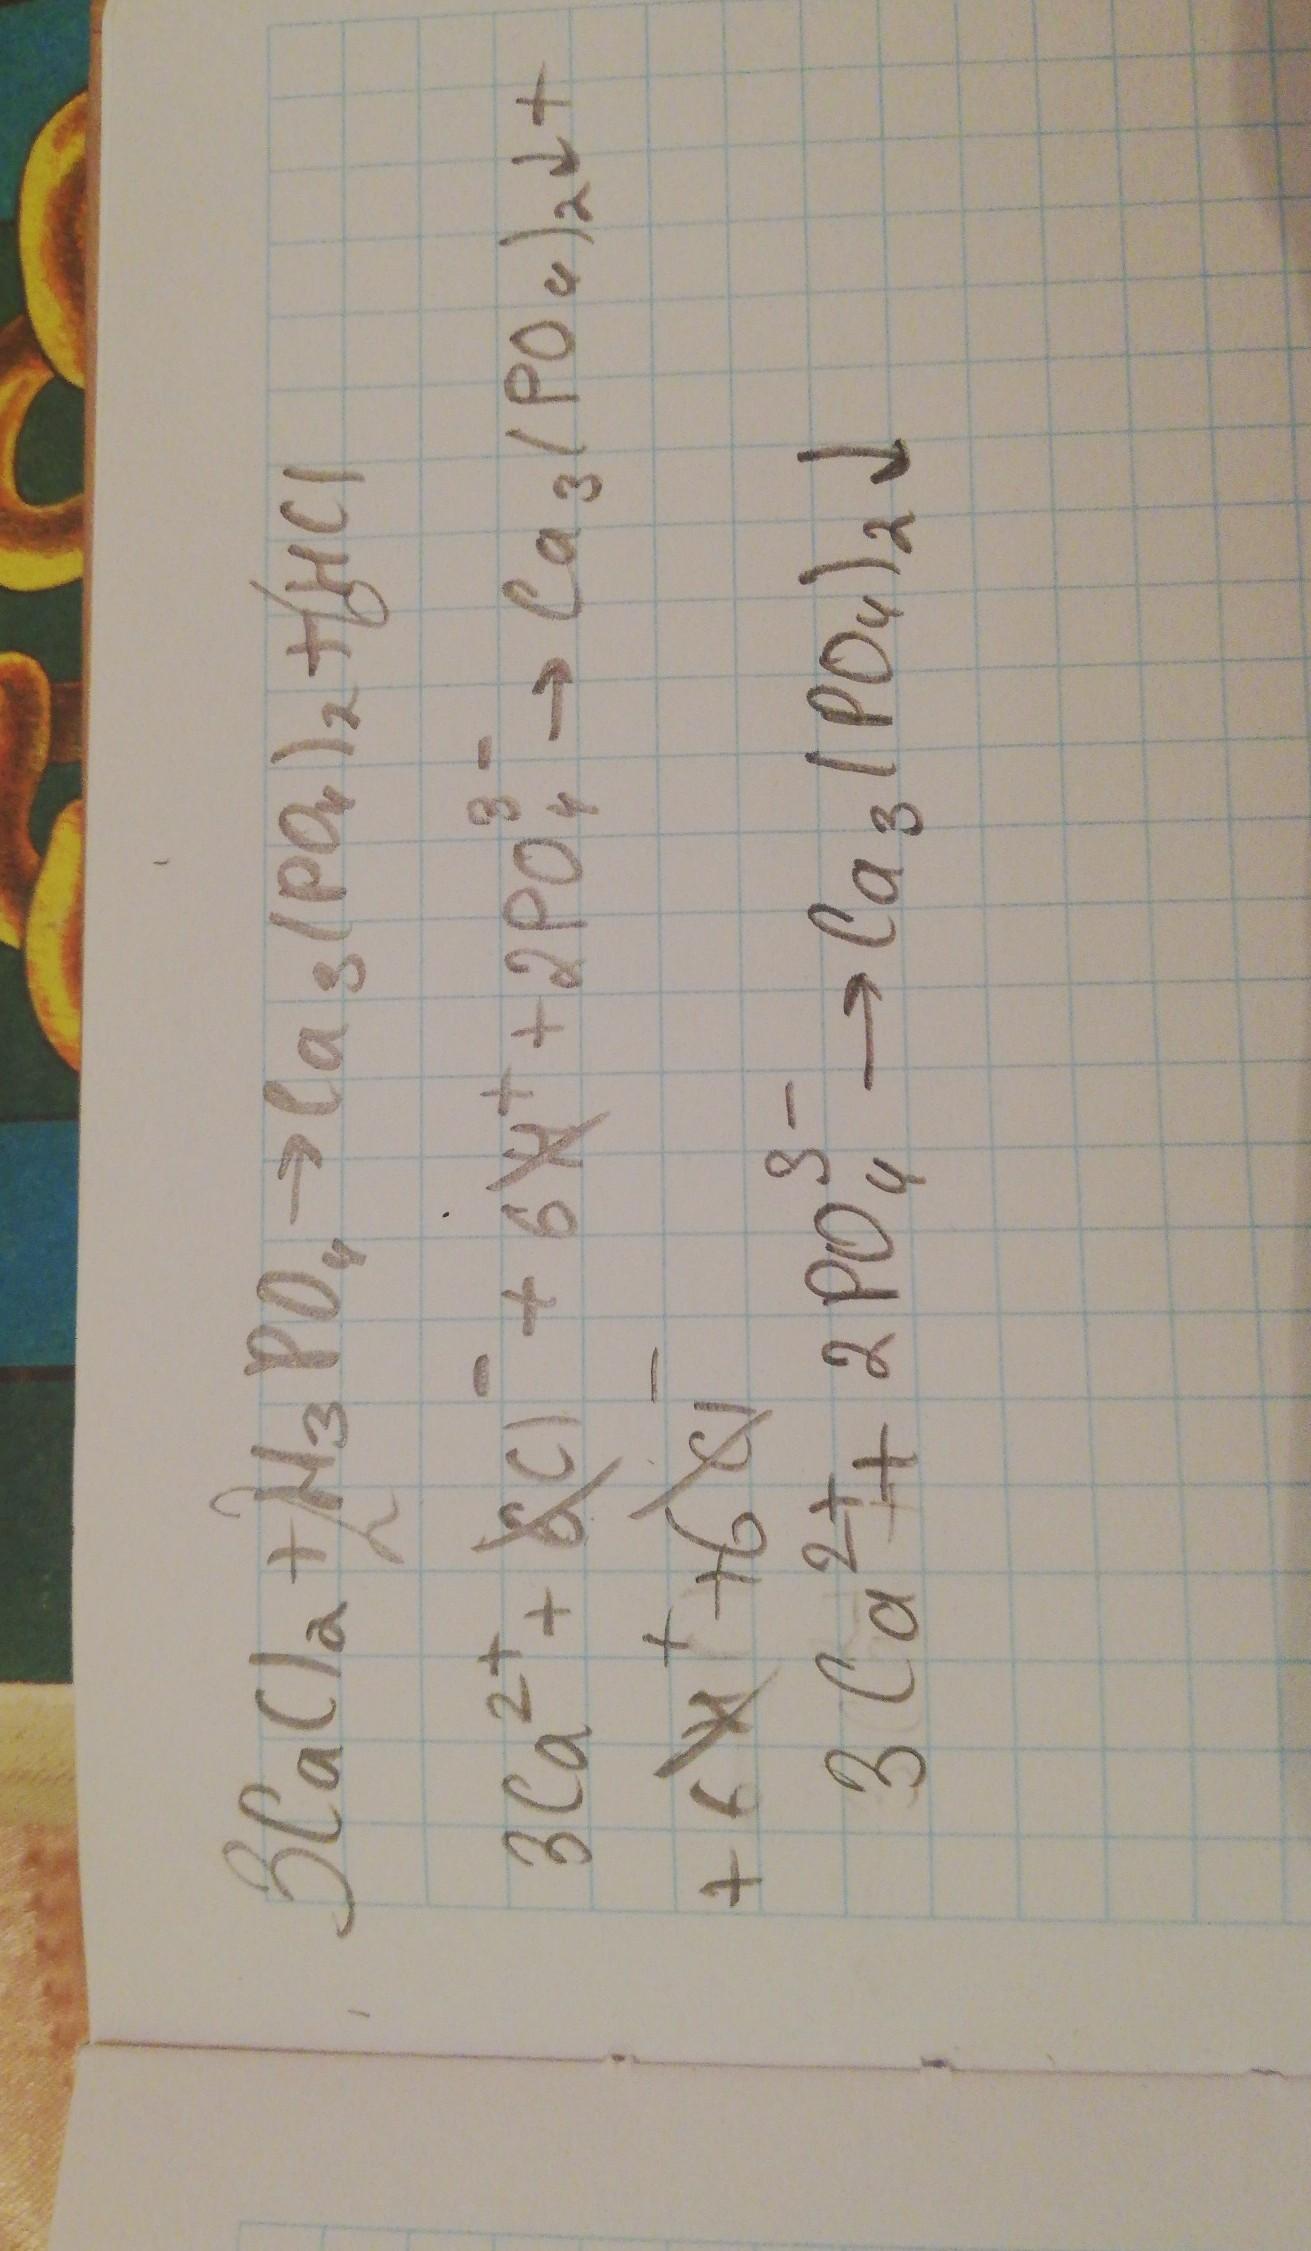 3CaCl₂ + 2H₃PO₄ → Ca₃(PO₄)₂ + 6HCl
3Ca²⁺ + 6Cl⁻ + 6H⁺ + 2PO₄³⁻ → Ca₃(PO₄)₂↓ +
+ 6H⁺ + 6Cl⁻
3Ca²⁺ + 2PO₄³⁻ → Ca₃(PO₄)₂↓